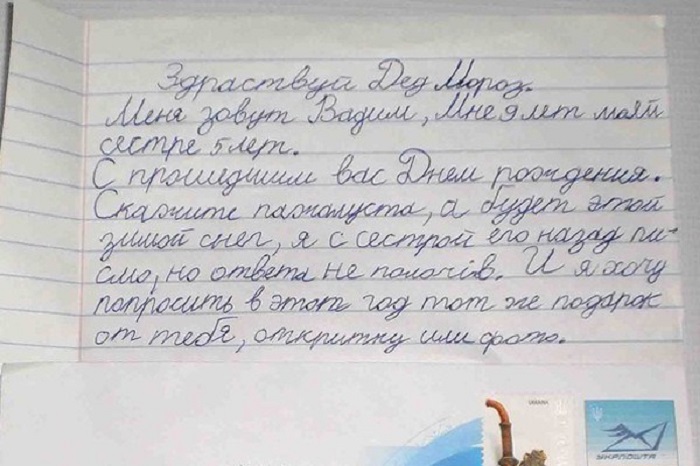 Здраствуй Дед Мороз.
Меня зовут Вадим, Мне 9 лет моей
сестре 5 лет.
С прошедшим вас Днем рождения.
Скажите пажалуста, а будет этой
зимой снег, я с сестрой его назад пи-
смо, но ответа не
И я хочу
попросить в этот год тот же подарок
от тебя, открытку или фото.
UKRAINA
УКРПОШТА